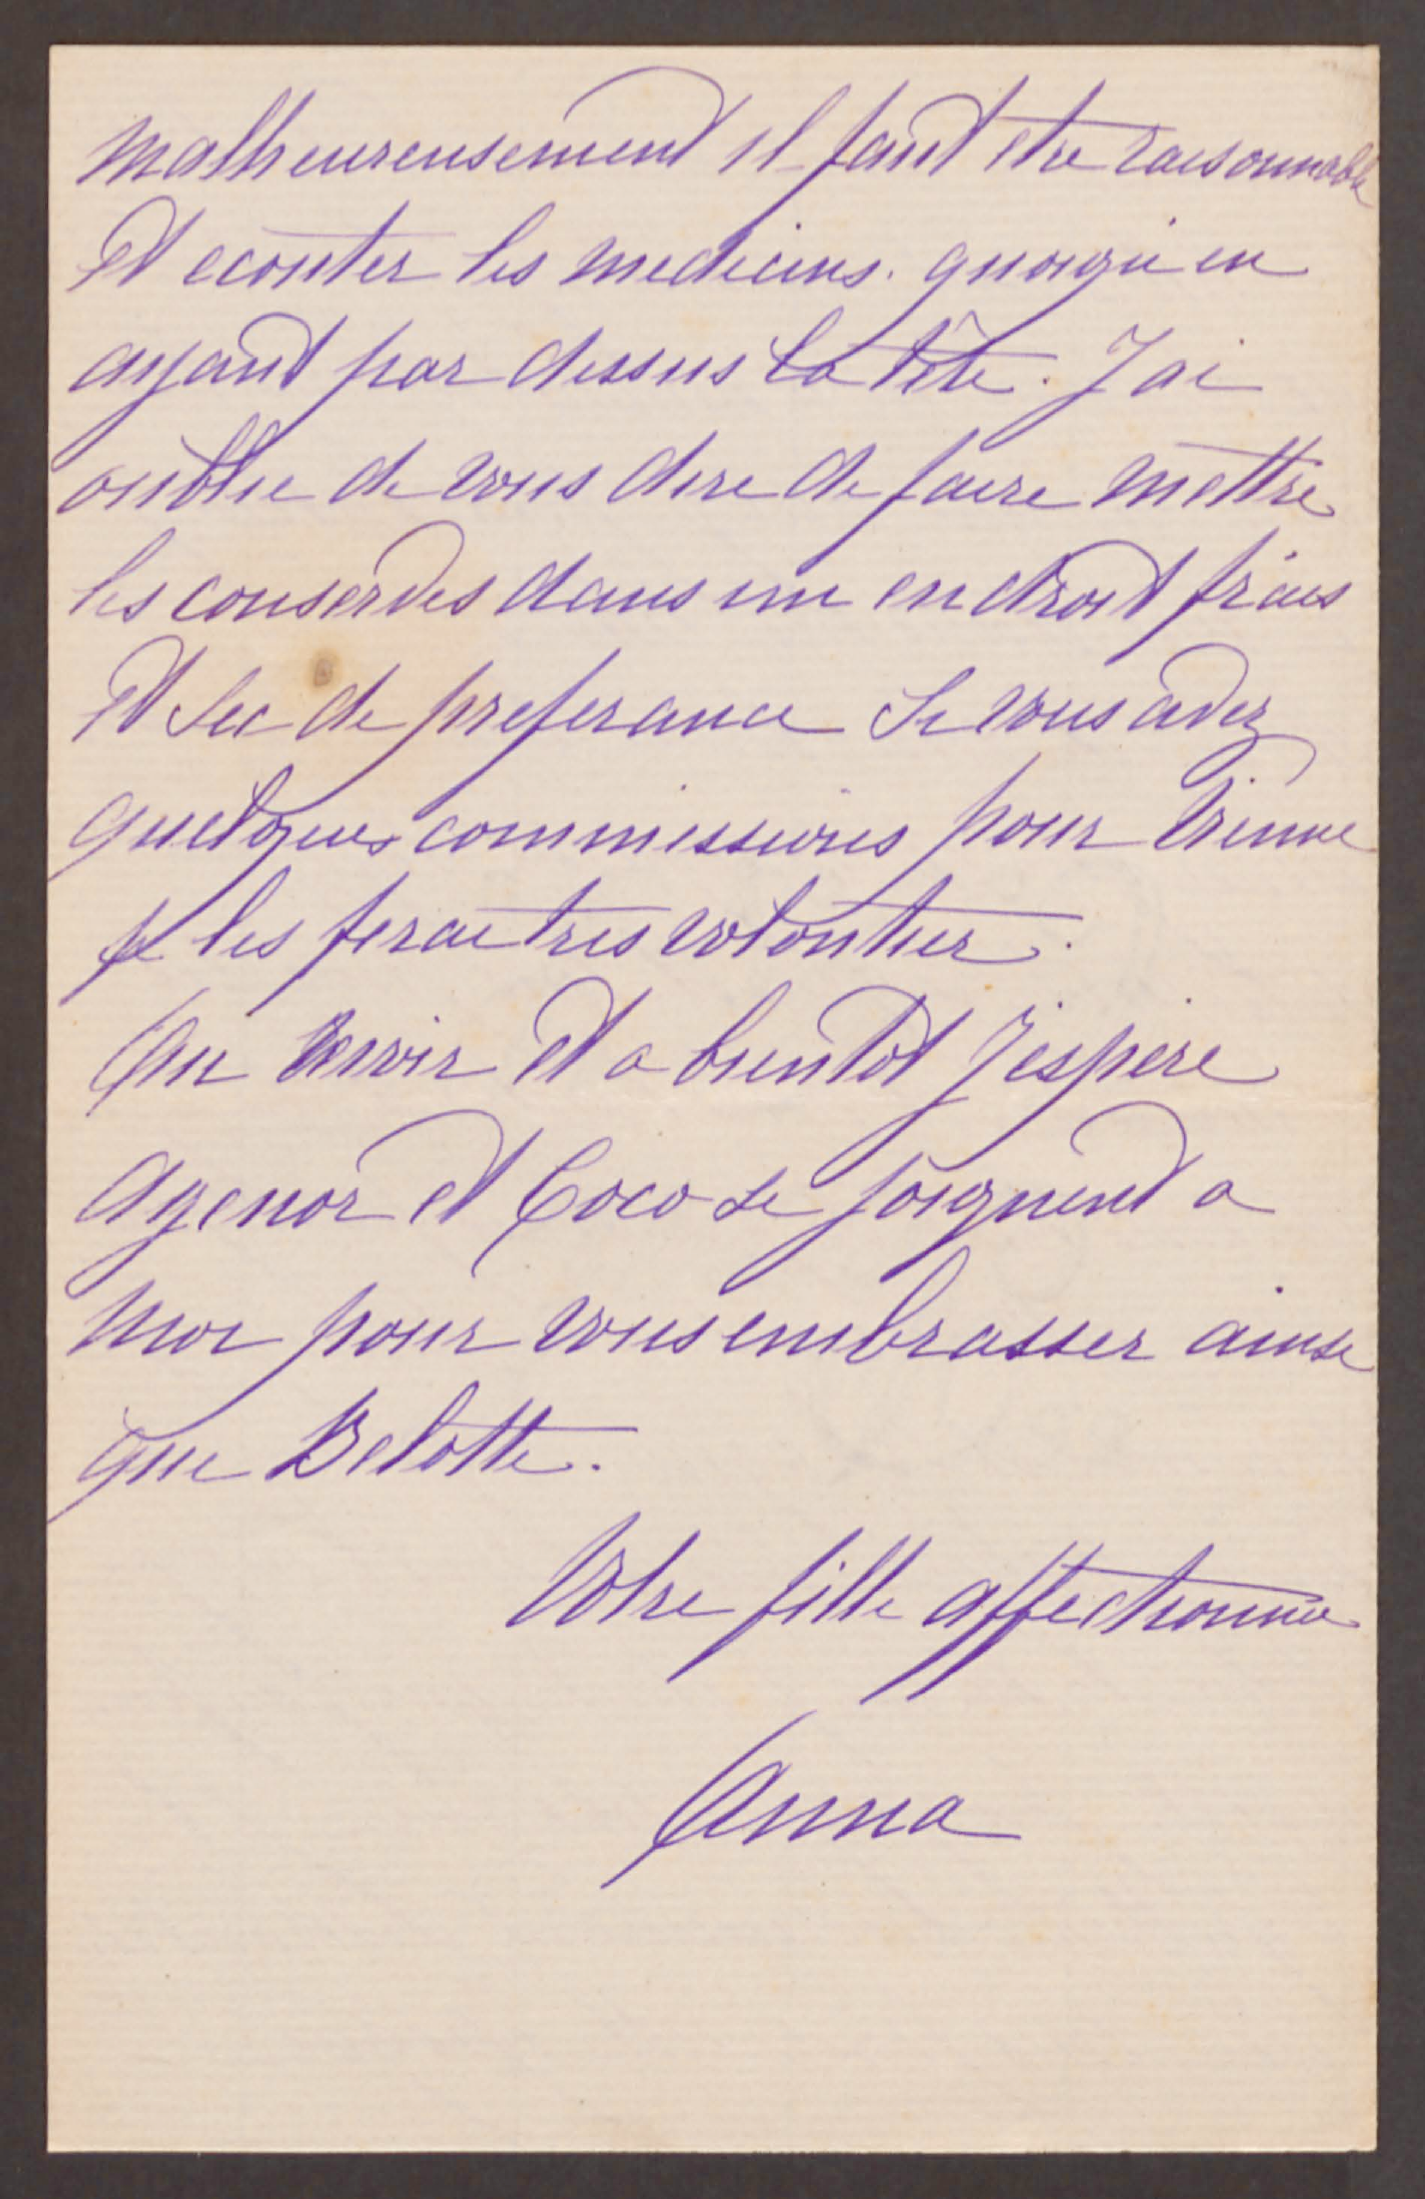 malheureusement il faut etre raisonnable
et ecouter les medecins. quoiqu'en
ayant par dessus la tête. J'ai
oublie de vous dire de faire mettre
les conserves dans un endroit frais
et sec de preferance Si vous avez
quelques commissions pour Vienne
je les ferai tres volontier.
Au revoir et a bientot j'espere
Agenor et Coco se joignent a
moi pour vous embrasser ainsi
que Belotte.
Votre fille affectionnee
Anna